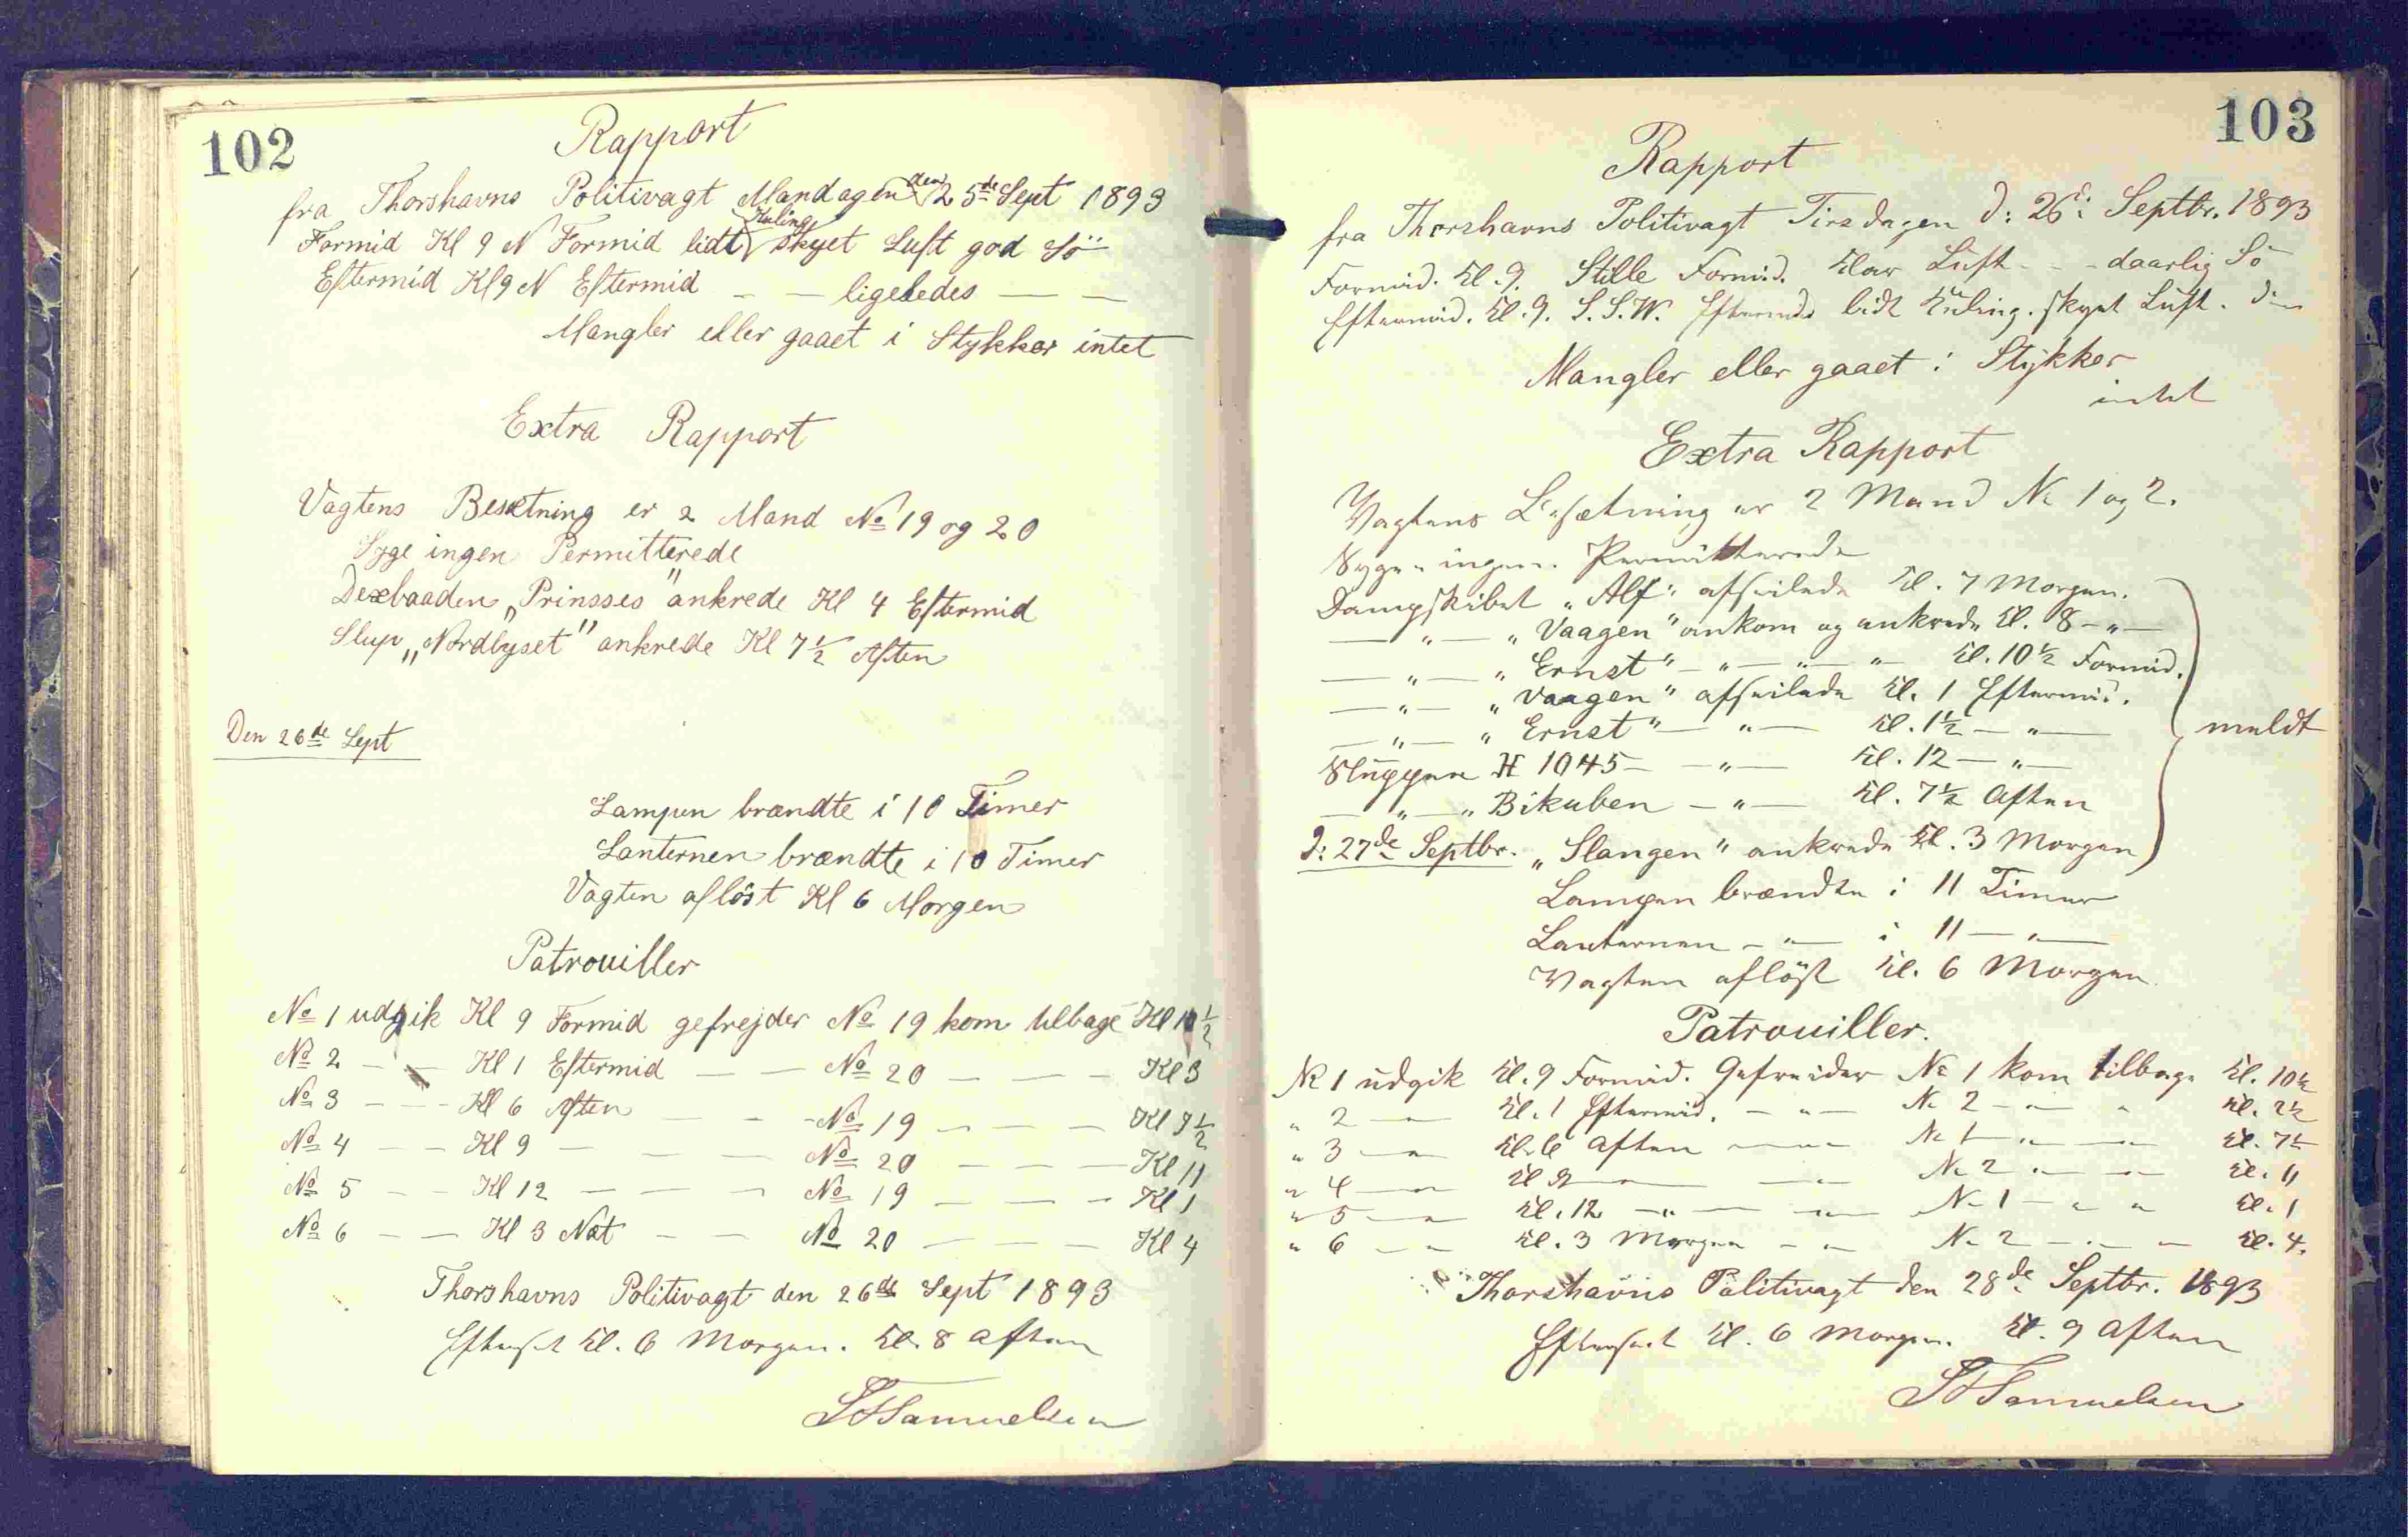 102
Rapport
fra Thorshavns Politivagt Mandagen den 25de Sept 1893
Formid Kl 9 N Formid lidt Kuling skyet Luft god Sö
Eftermid Kl 9 N Eftermid – – ligeledes – –
Mangler eller gaaet i Stykker intet
Extra Rapport
Vagtens Besetning er 2 Mand No 19 og 20
Syge ingen Permitterede
Dexbaaden „Prinsses" ankrede Kl 4 Eftermid
Slup „Nordlyset" ankrede Kl 7½ Aften
Den 26de Sept
Lampen brændte i 10 Timer
Lanternen brændte i 10 Timer
Vagten aflöst Kl 6 Morgen
Patrouiller
No 1 udgik Kl 9 Formid gefrejder No 19 kom tilbage Kl 10½
No 2 – – Kl 1 Eftermid – – No 20 – – – Kl 3
No 3 – – Kl 6 Aften – – No 19 – – – Kl 7½
No 4 – – Kl 9 – – – No 20 – – – Kl 11
No 5 – – Kl 12 – – – No 19 – – – Kl 1
No 6 – – Kl 3 Nat – – No 20 – – – Kl 4
Thorshavns Politivagt den 26de Sept 1893
Efterset Kl. 6 Morgen. Kl. 8 Aften
Samuelsen
103
Rapport
fra Thorshavns Politivagt Tirsdagen d: 26d: Septbr. 1893
Formid. Kl. 9. Stille Formid. klar Luft - - - daarlig Sö
Eftermid. Kl. 9. S.S.W. Eftermid. lidt Kuling. skyet Luft. do
Mangler eller gaaet i Stykker
intet
Extra Rapport
Vagtens Besætning er 2 Mand No 1 og 2.
Syge ingen. Permitterede
Dampskibet „Alf" afseilede Kl. 7 Morgen.
— " — „Vaagen" ankom og ankrede Kl. 8 – " –
— " — „Ernst" – " – " – " Kl. 10½ Formid.
— " — „Vaagen" afseilede Kl. 1 Eftermid.
— " — „Ernst" – " – Kl. 1½ – " –
meldt
Sluppen H 1045 – – " – Kl. 12 – " –
— " — „Bikuben – " – Kl. 7½ Aften
D: 27de Septbr. „Slangen" ankrede Kl. 3 Morgen
Lampen brændte i 11 Timer
Lanternen – " – i 11 – " –
Vagten aflöst Kl. 6 Morgen.
Patrouiller.
No 1 udgik Kl. 9 Formid. Gefreider No 1 kom tilbage Kl. 10½
" 2 – " Kl. 1 Eftermid. – " – No 2 – " – " Kl. 2½
" 3 – " Kl. 6 Aften – " – No 1 – " – " Kl. 7½
" 4 – " Kl 9 – " – – " – No 2 – " – " Kl. 11
" 5 – " Kl. 12 – " – – " – No 1 – " – " Kl. 1
" 6 – " Kl. 3 Morgen – " – No 2 – " – " Kl. 4.
Thorshavns Politivagt den 28de Septbr. 1893
Efterset Kl. 6 Morgen. Kl. 9 Aften
Samuelsen